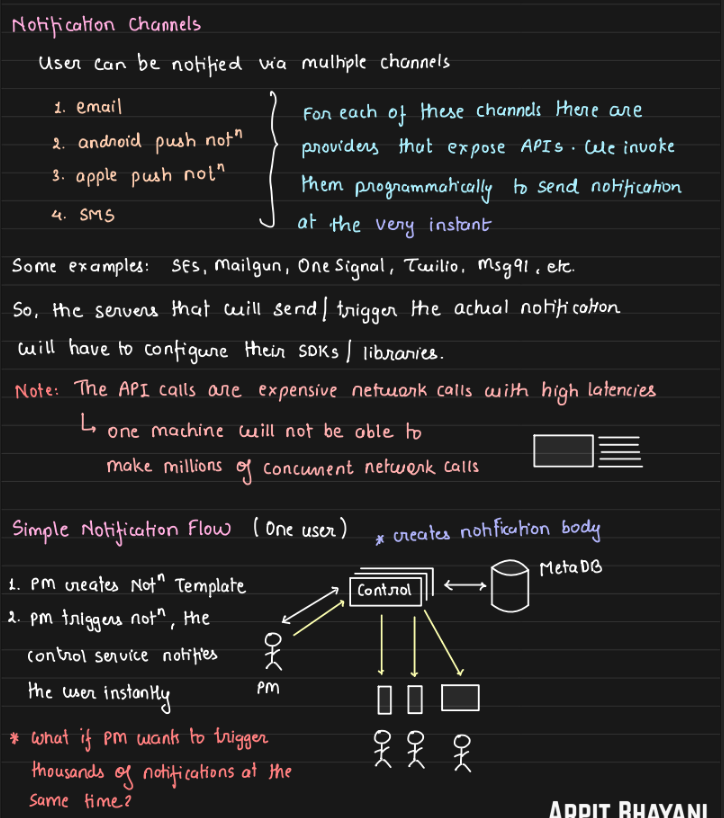 Notification Channels
User can be notified via multiple channels
1. email
2. android push notⁿ
3. apple push notⁿ
4. SMS
For each of these channels there are
providers that expose APIs. We invoke
them programmatically to send notification
at the very instant
Some examples: SES, Mailgun, One Signal, Twilio, Msg91, etc.
So, the servers that will send/trigger the actual notification
will have to configure their SDKs/libraries.
Note: The API calls are expensive network calls with high latencies
↳ one machine will not be able to
make millions of concurrent network calls
Simple Notification Flow (One user) * creates notification body
1. PM creates Notⁿ Template
2. PM triggers notⁿ, the
control service notifies
the user instantly
Control
MetaDB
PM
* What if PM wants to trigger
thousands of notifications at the
same time?
ARPIT BHAYANI